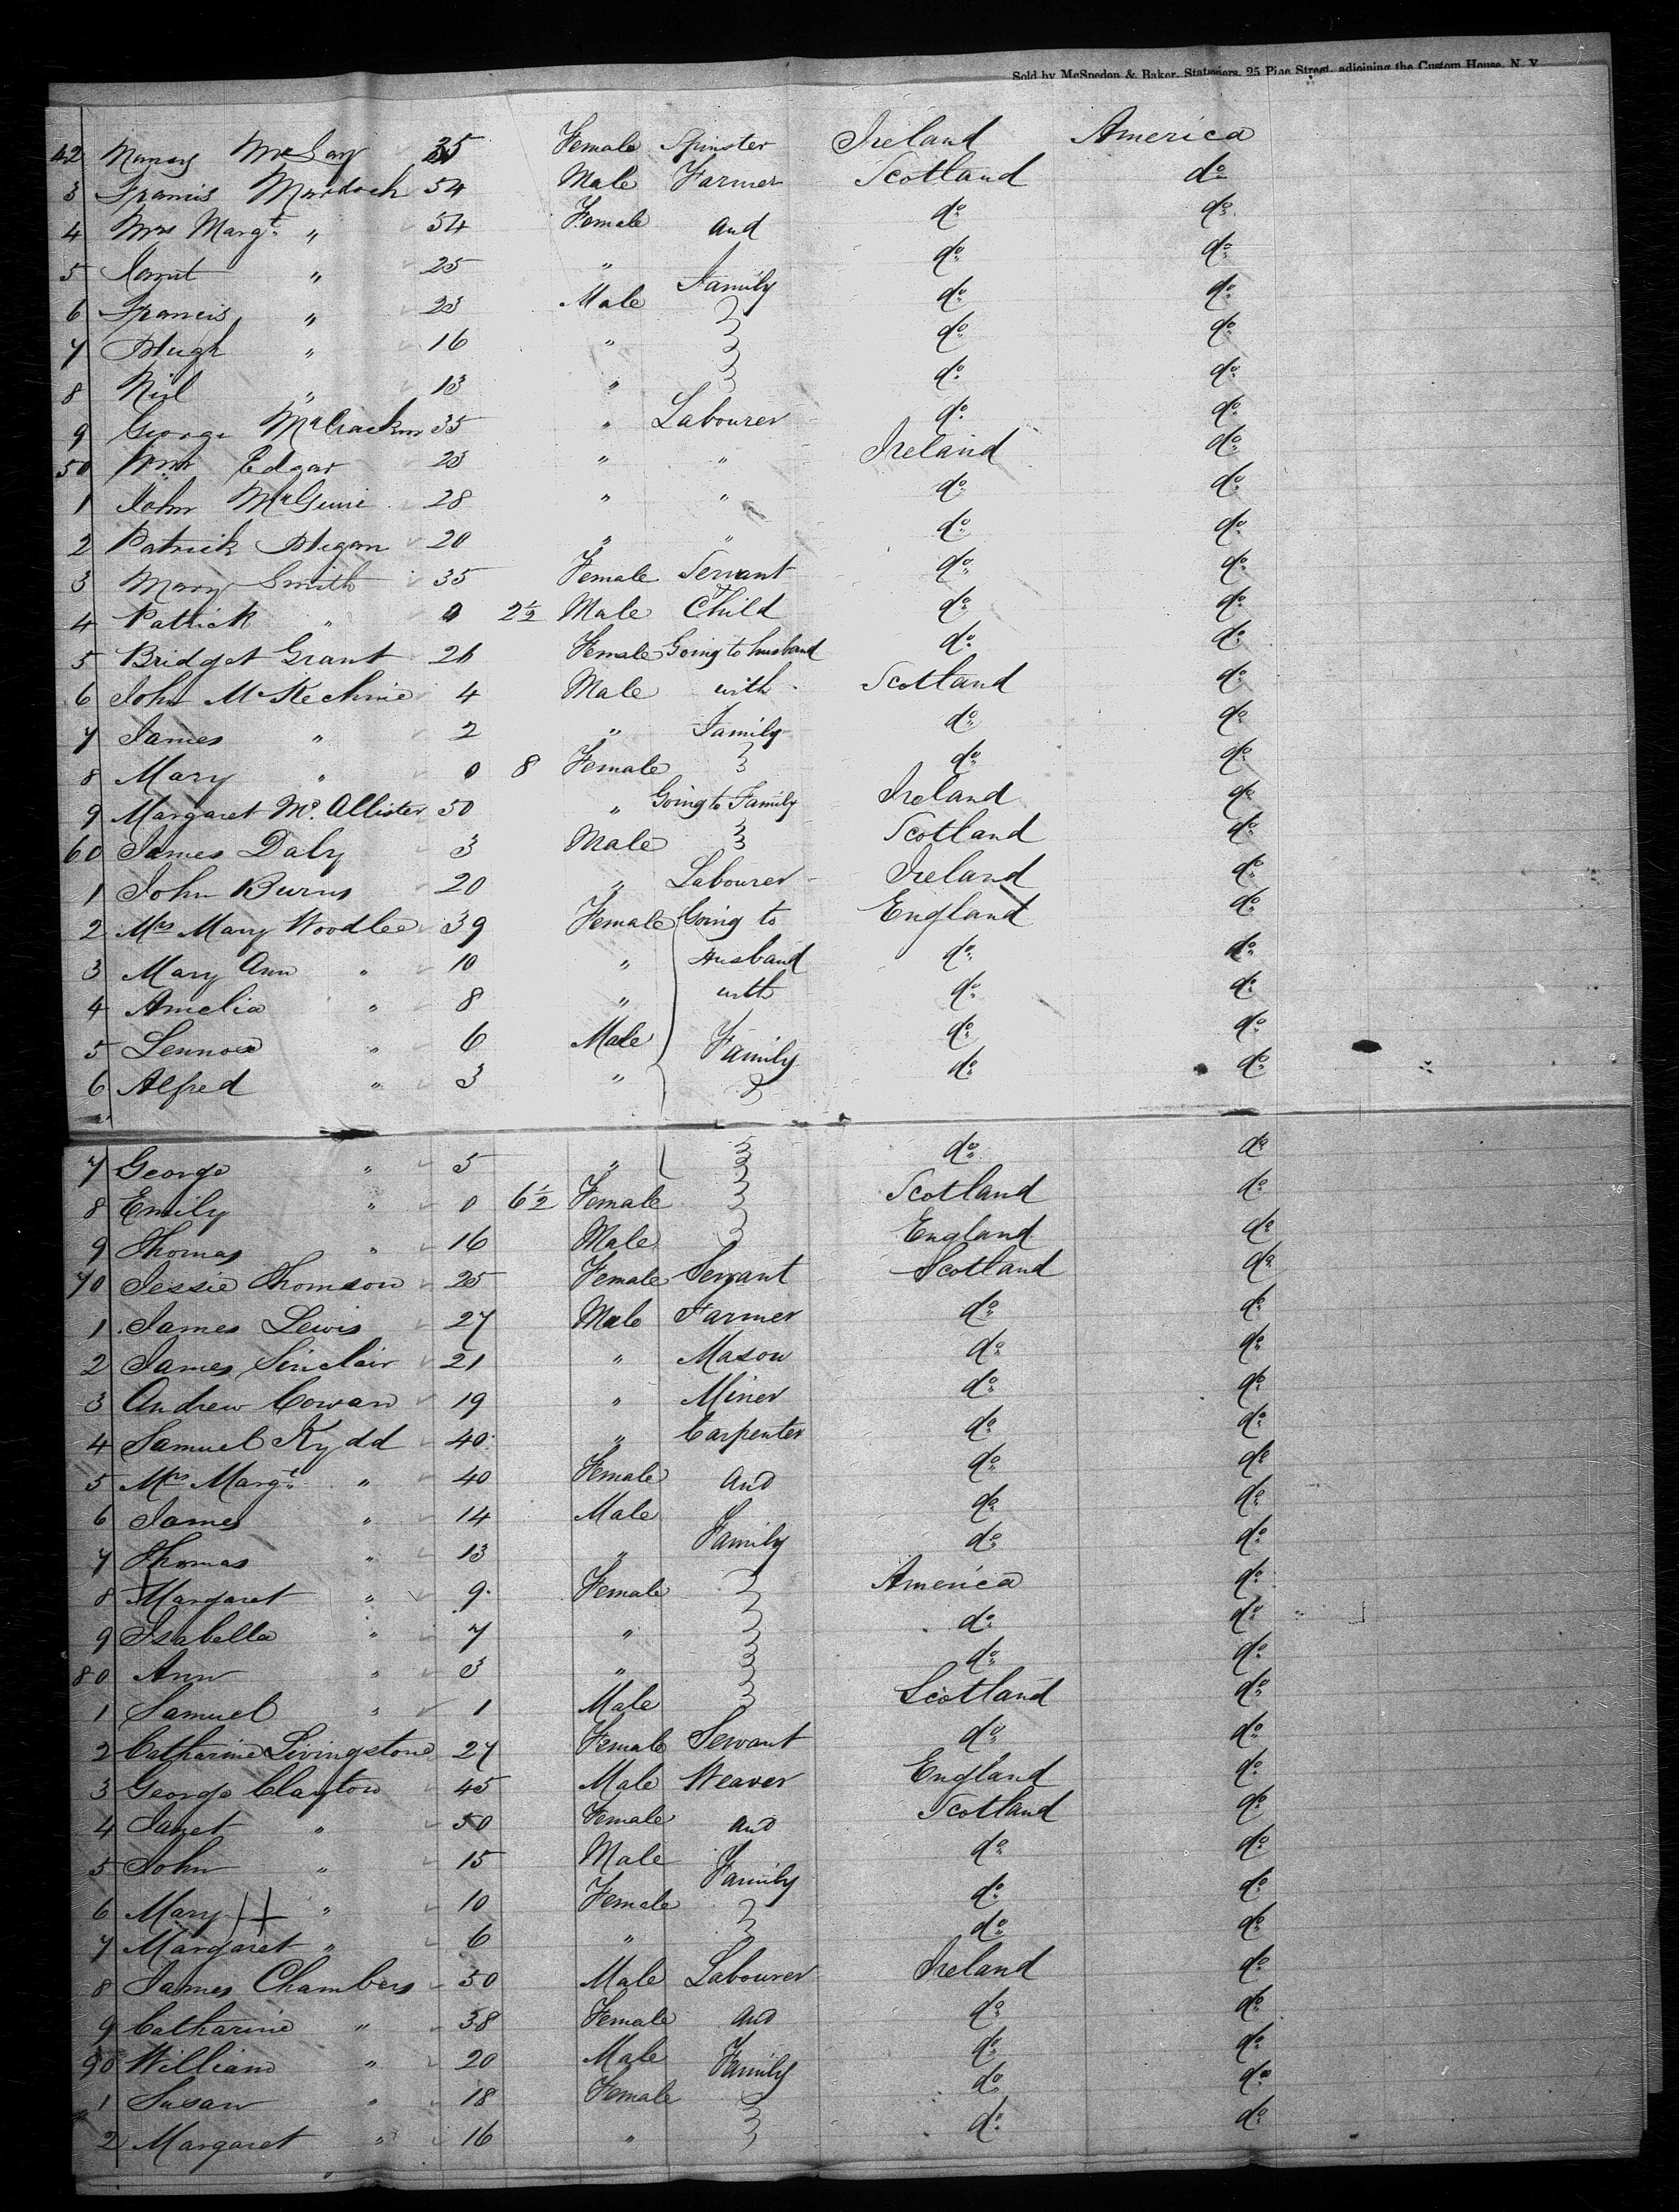 Sold by McSpedon & Baker, Stationers, 25 Pine Street, adjoining the Custom House, N. Y.
42 Nancy McGay 35 Female Spinster Ireland America
3 Francis Murdoch 54 Male Farmer Scotland do
4 Mrs Margt " 54 Female and do do
5 Janet " 25 " Family do do
6 Francis " 23 Male do do
7 Hugh " 16 " do do
8 Neil " 13 " do do
9 George McCracken 35 " Labourer do do
50 Wm Edgar 23 " " Ireland do
1 John McGuire 28 " " do do
2 Patrick Hegan 20 " " do do
3 Mary Smith 35 Female Servant do do
4 Patrick " 0 2½ Male Child do do
5 Bridget Grant 26 Female Going to husband do do
6 John McKechnie 4 Male with Scotland do
7 James " 2 " Family do do
8 Mary " 0 8 Female do do
9 Margaret McAllister 50 " Going to Family Ireland do
60 James Daly 3 Male Scotland do
1 John Burns 20 " Labourer Ireland do
2 Mrs Mary Woodlee 39 Female Going to England do
3 Mary Ann " 10 " Husband do do
4 Amelia " 8 " with do do
5 Lennox " 6 Male Family do do
6 Alfred " 3 " do do
7 George " 5 " do do
8 Emily " 0 6½ Female Scotland do
9 Thomas " 16 Male England do
70 Jessie Thomson 25 Female Servant Scotland do
1 James Lewis 27 Male Farmer do do
2 James Sinclair 21 " Mason do do
3 Andrew Cowan 19 " Miner do do
4 Samuel Kydd 40 " Carpenter do do
5 Mrs Margt " 40 Female and do do
6 James " 14 Male do do
7 Thomas " 13 " Family do do
8 Margaret " 9 Female America do
9 Isabella " 7 " do do
80 Ann " 3 " do do
1 Samuel " 1 Male Scotland do
2 Catharine Livingstone 27 Female Servant do do
3 George Clayton 45 Male Weaver England do
4 Janet " 50 Female and Scotland do
5 John " 15 Male Family do do
6 Mary " 10 Female do do
7 Margaret " 6 " do do
8 James Chambers 50 Male Labourer Ireland do
9 Catharine " 38 Female and do do
90 William " 20 Male Family do do
1 Susan " 18 Female do do
2 Margaret " 16 " do do